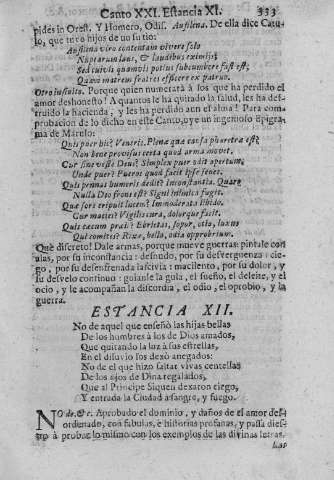 Canto XXI. Estancia XI. 333
pides in Orest. Y Homero, Odis. Aufilena. De ella dice Catu-
lo, que tuvo hijos de un su tio:
Aufilena viro contentam vivere solo
Nuptarum laus, & laudibus eximijs;
Sed cuivis quamvis potius subcumbere fast est;
Quam matrem fratres efficere ex patruo.
Otro insulto. Porque quien numerarà à los que ha perdido el
amor deshonesto! A quantos le ha quitado la salud, les ha des-
truido la hacienda, y les ha perdido aun el alma! Para com-
probacion de lo dicho en este Canto, oye un ingenioso Epigra-
ma de Marulo:
Quis puer hic? Veneris. Plenæ quæ causa pharetræ est?
Non bene provisus certa quod arma movet.
Cur sine veste Deus? Simplex puer odit apertum,
Unde puer? Pueros quod facit ipse senes.
Quis pennas humeris dedit? Inconstantia. Quare
Nulla Deo frons est? Signa inimica fugit.
Quæ fors eripuit lucem? Immoderata libido.
Cur macies? Vigilis cura, dolorque facit.
Quis cæcum præit? Ebrietas, sopor, otia, luxus
Qui comites? Rixæ, bella, odia opprobrium.
Què discreto! Dale armas, porque mueve guerra: pintale con
alas, por su inconstancia: desnudo, por su desverguenza: cie-
go, por su desenfrenada lascivia: macilento, por su dolor, y
su desvelo continuo: guianle la gula, el sueño, el deleite, y el
ocio, y le acompañan la discordia, el odio, el oprobio, y la
guerra.
ESTANCIA XII.
No de aquel que enseñò las hijas bellas
De los hombres à los de Dios amados,
Que quitando la luz à sus estrellas,
En el diluvio los dexò anegados:
No de el que hizo saltar vivas centellas
De los ojos de Dina regalados,
Que al Principe Siquen dexaron ciego,
Y entrada la Ciudad à sangre, y fuego.
NO de, &c. Aprobado el dominio, y daños de el amor des-
ordenado, con fabulas, è historias profanas, y passa dies-
tro à probar lo mismo con los exemplos de las divinas letras.